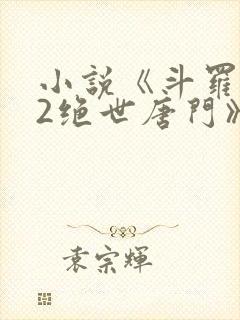 小說《斗羅
2绝世唐門》
袁宗輝